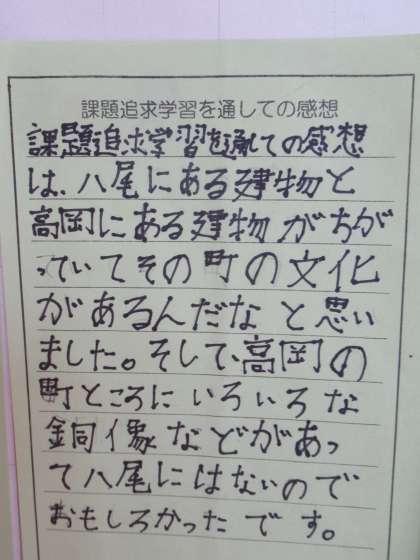 課題追求学習を通しての感想
課題追求学習を通しての感想
は、八尾にある建物と
高岡にある建物がちが
っていてその町の文化
があるんだなと思い
ました。そして、高岡の
町ところにいろいろな
銅像などがあっ
て八尾にはないので
おもしろかったです。